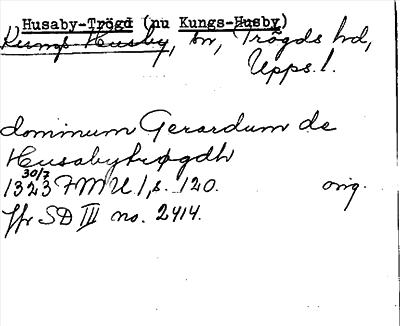 Husaby-Trögd (nu Kungs-Husby)
Kungs-Husby, sn, Trögds hd,
Upps. l.
dominum Gerardum de
Husabythrøgdh
30/7
1323 FMU 1, s. 120. orig.
Jfr SD III no. 2414.